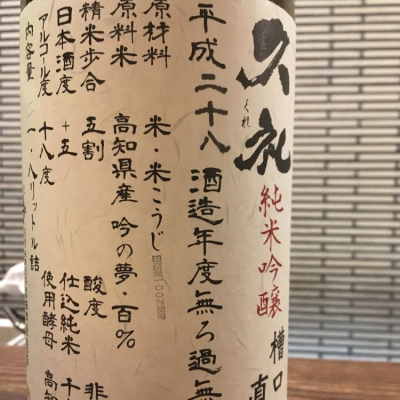 久礼
くれ
純米吟醸
槽口
直
平成二十八酒造年度無ろ過無
原材料 米・米こうじ
原料米 高知県産 吟の夢・百%
精米歩合 五割 酸度 非
日本酒度 +五 仕込純米 千
アルコール度 十八度 使用酵母 高知
内容量 一・八リットル詰